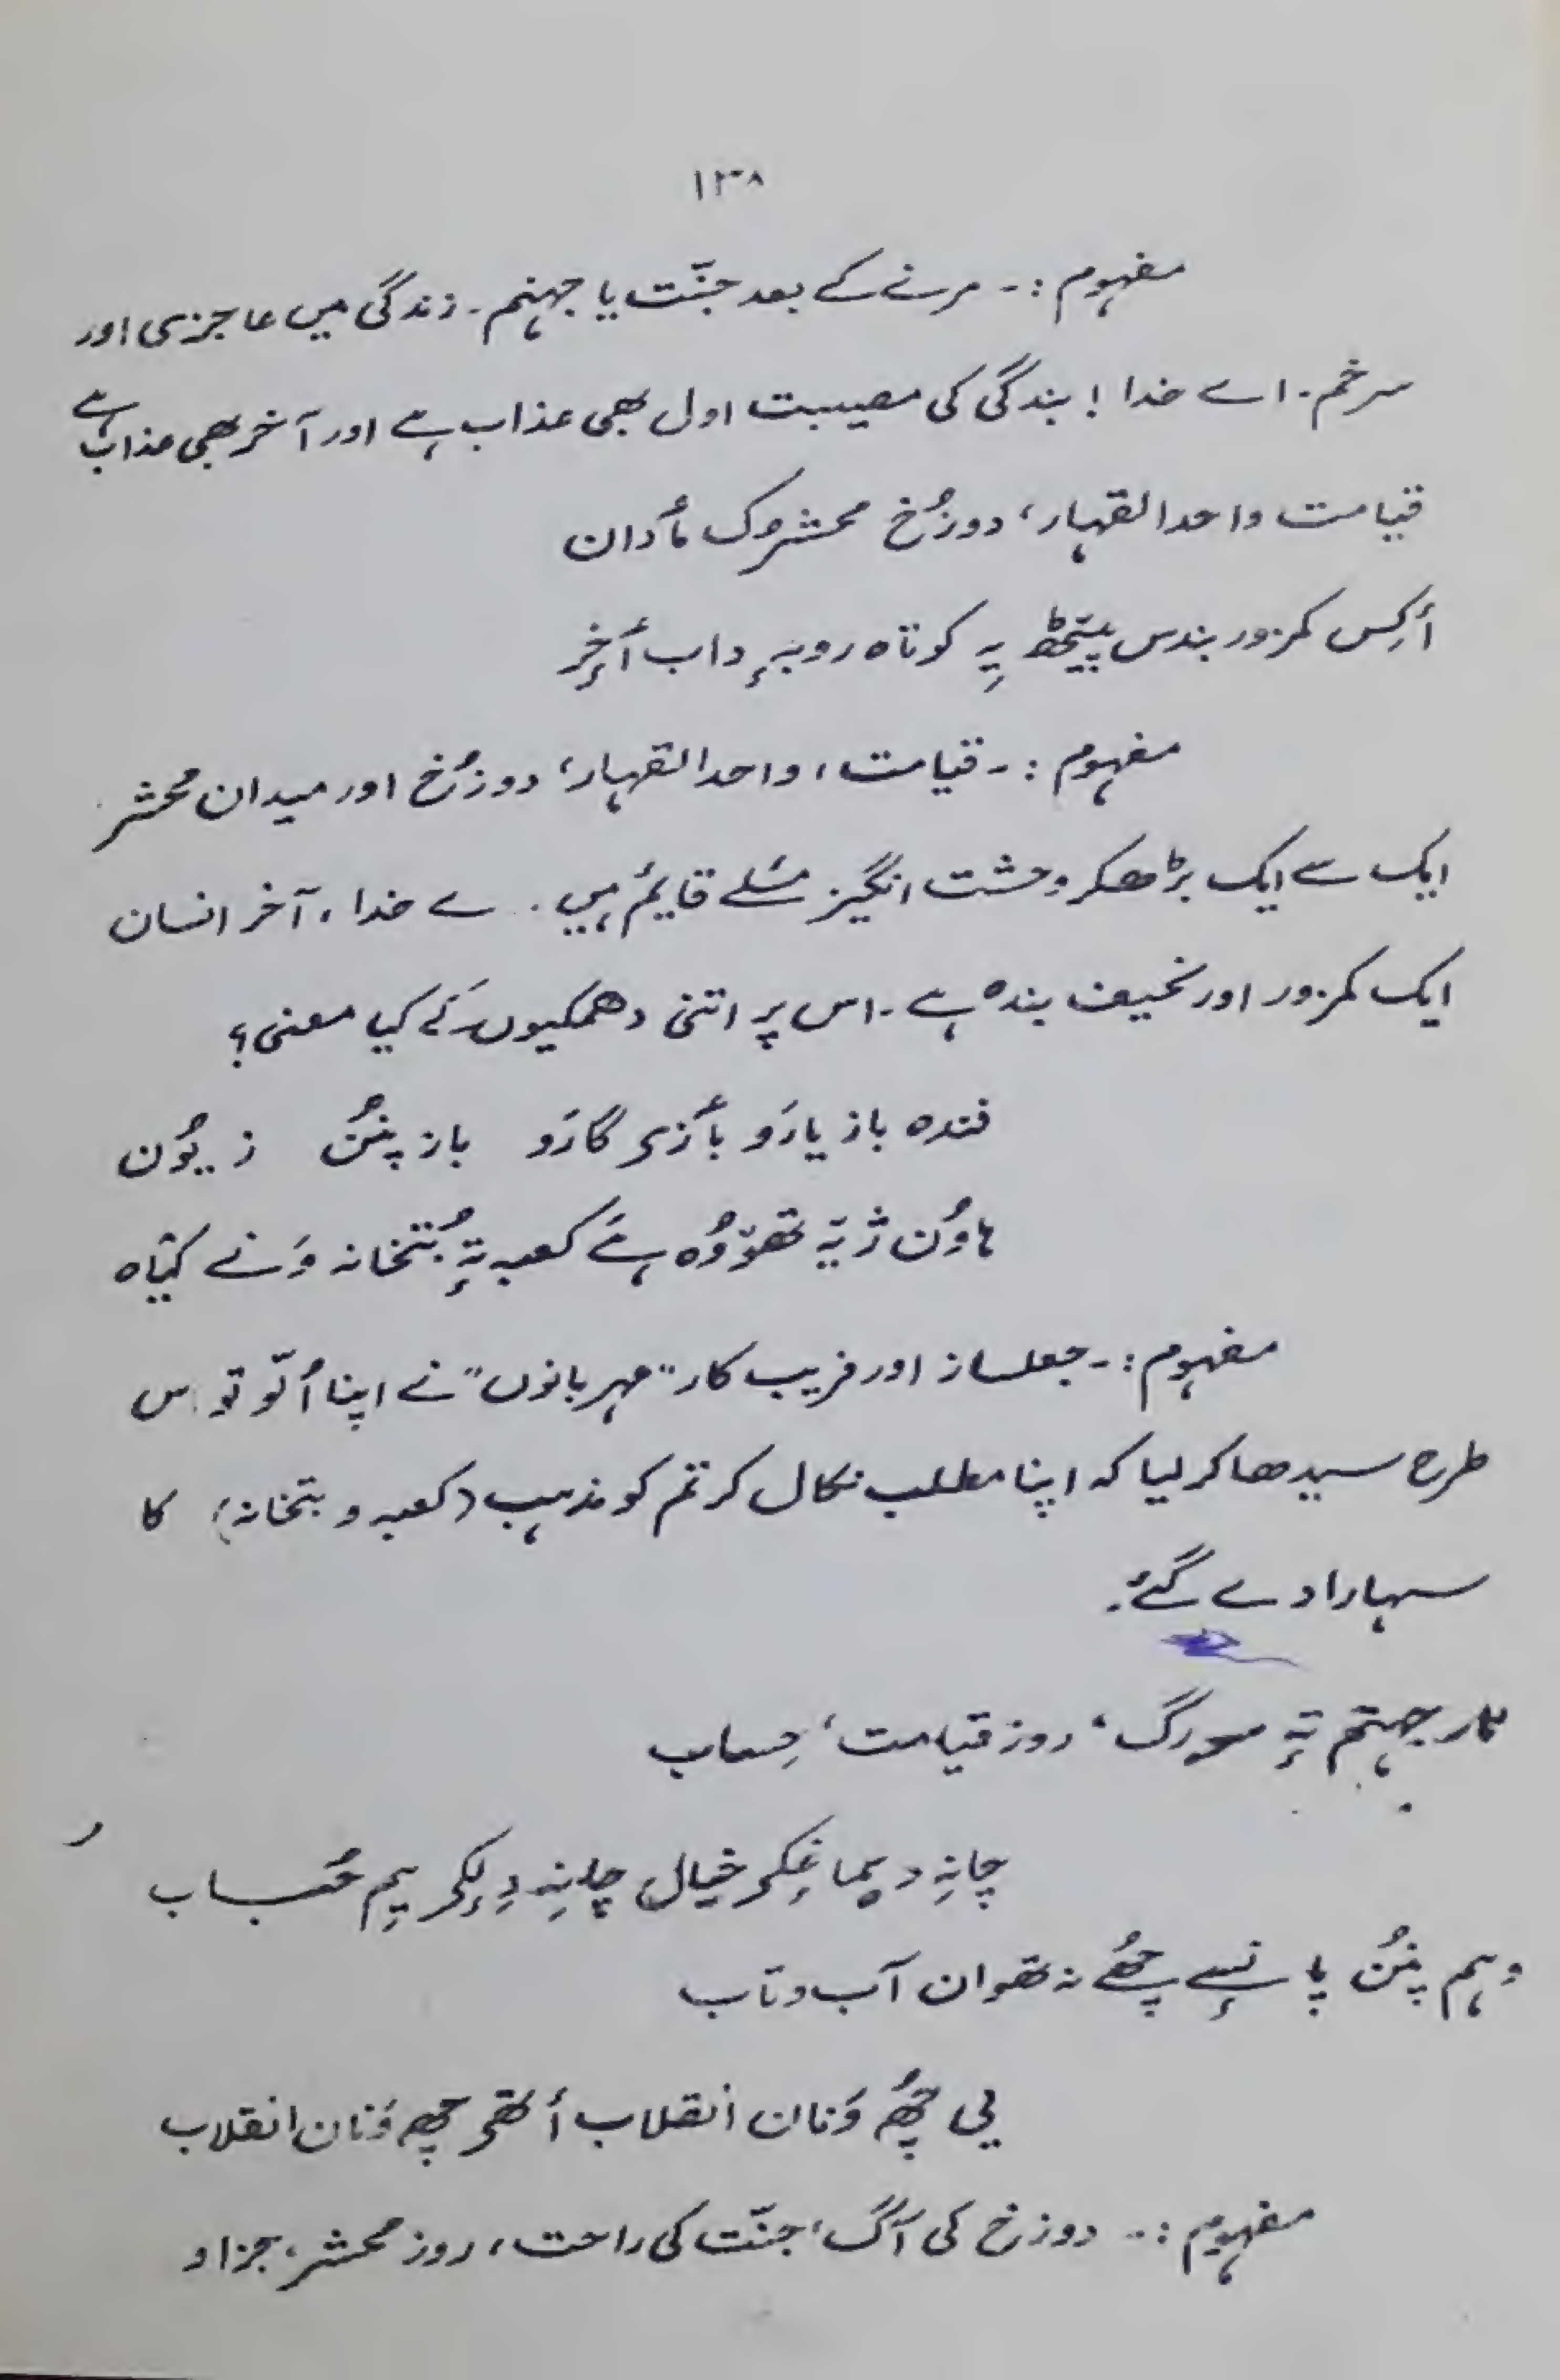 ۱۳۸
مفہوم :۔ مرنے کے بعد جنّت یا جہنم۔ زندگی میں عاجزی اور
سرخم۔ اے خدا ! بندگی کی مصیبت اول بھی عذاب ہے اور آخر بھی عذاب ہے
قیامت واحد القہار، دوزُخ محشرُک مٲدان
أکِس کمزور بندس پیٹھ یِہ کوتاہ روبہٕ داب أخِر
مفہوم :۔ قیامت، واحد القہار، دوزُخ اور میدان محشر
ایک سے ایک بڑھکر وحشت انگیز مسٔلے قایٔم ہیں۔ ے خدا، آخر انسان
ایک کمزور اور نحیف بندہ ہے۔ اس پر اتنی دھمکیوں کے کیا معنی؟
فندہ باز یارَو بٲزی گارَو باز پننُ زیوٗن
ہاوُن ژیہ تھوٚوُہ ہے کعبہ تہٕ بُتخانہ وَنے کیٛاہ
مفہوم :۔ جعلساز اور فریب کار "مہربانوں" نے اپنا اُلّو تو اس
طرح سیدھا کر لیا کہ اپنا مطلب نکال کر تم کو مذہب (کعبہ و بتخانہ) کا
سہارا دے گئے۔
نار جہنم تہٕ سورگ، روز قیامت، حِساب
چانِہ دیماغٕکی خیال چانِہ دِلٕکی یِم حُباب
وہم پننُ پانسٕے چھُے نہ تھوان آب و تاب
یی چھُ وَنان انقلاب أتھی چھِ وَنان انقلاب
مفہوم :۔ دوزخ کی آگ، جنّت کی راحت، روز محشر، جزا و